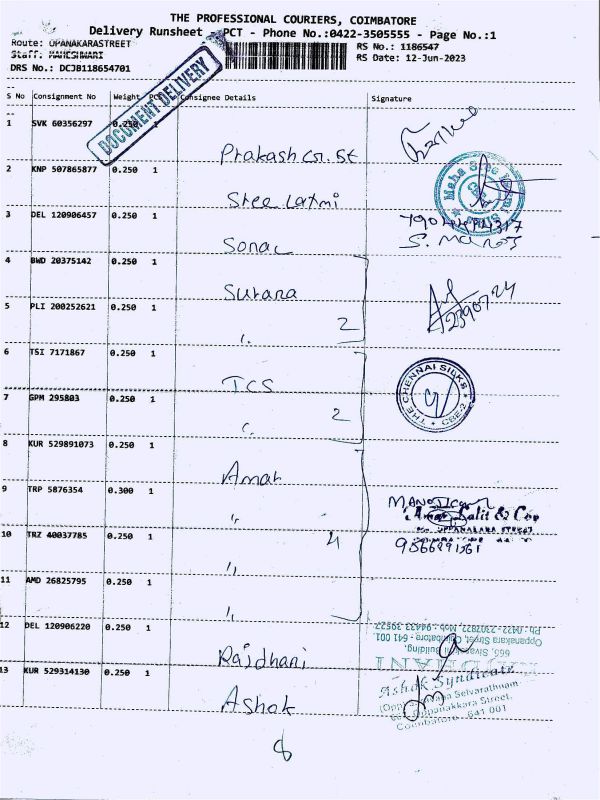 THE PROFESSIONAL COURIERS, COIMBATORE
Delivery Runsheet - PCT - Phone No.:0422-3505555 - Page No.:1
Route: OPANAKARASTREET
RS No.: 1186547
Staff: MAHESHWARI
RS Date: 12-Jun-2023
DRS No.: DCJB118654701
DOCUMENT DELIVERY
S No Consignment No Weight PCS Consignee Details Signature
1 SVK 60356297 0.250 1 Prakash
2 KNP 507865877 0.250 1 Sree Laxmi
Maha Sree
3 DEL 120906457 0.250 1 Sonal
4 BWD 20375142 0.250 1 Surana
5 PLI 200252621 0.250 1 2
6 TSI 7171867 0.250 1 TCS
THE CHENNAI SILKS
CBE-2
7 GPM 295803 0.250 1 2
8 KUR 529891073 0.250 1 Amar
9 TRP 5876354 0.300 1 "
Lalit & Co
10 TRZ 40037785 0.250 1 " 4
11 AMD 26825795 0.250 1 "
12 DEL 120906220 0.250 1 Rajdhani
Ph : 0422 - 2307822, Mob : 94433 30527
Oppanakara Street, Coimbatore - 641 001.
666, Sivasakthi Building,
RAJDHANI
13 KUR 529314130 0.250 1 Ashok
Ashok Syndicate
Selvarathnam
Oppanakkara Street,
Coimbatore - 641 001
8